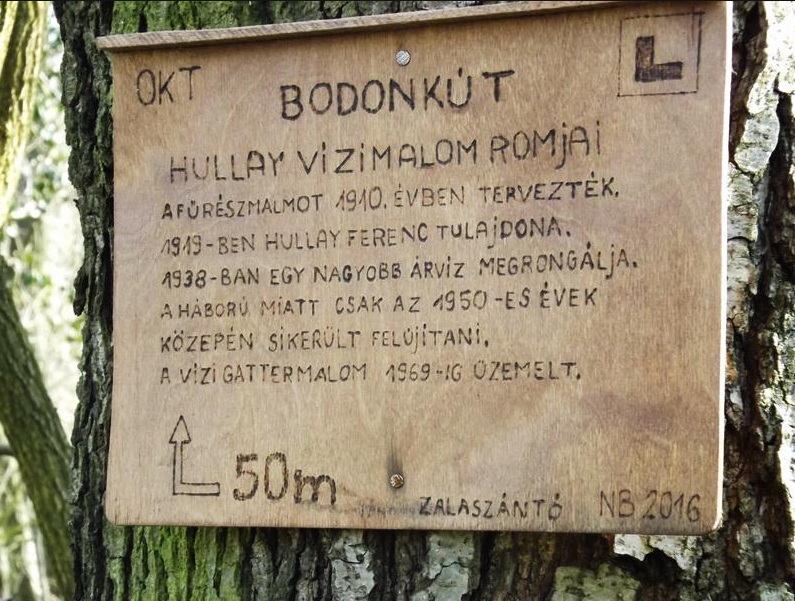 OKT
BODONKÚT
HULLAY VÍZIMALOM ROMJAI
A FŰRÉSZMALMOT 1910. ÉVBEN TERVEZTÉK.
1919-BEN HULLAY FERENC TULAJDONA.
1938-BAN EGY NAGYOBB ÁRVÍZ MEGRONGÁLJA.
A HÁBORÚ MIATT CSAK AZ 1950-ES ÉVEK
KÖZEPÉN SIKERÜLT FELÚJÍTANI.
A VÍZI GATTERMALOM 1969-IG ÜZEMELT.
50m
ZALASZÁNTÓ NB 2016